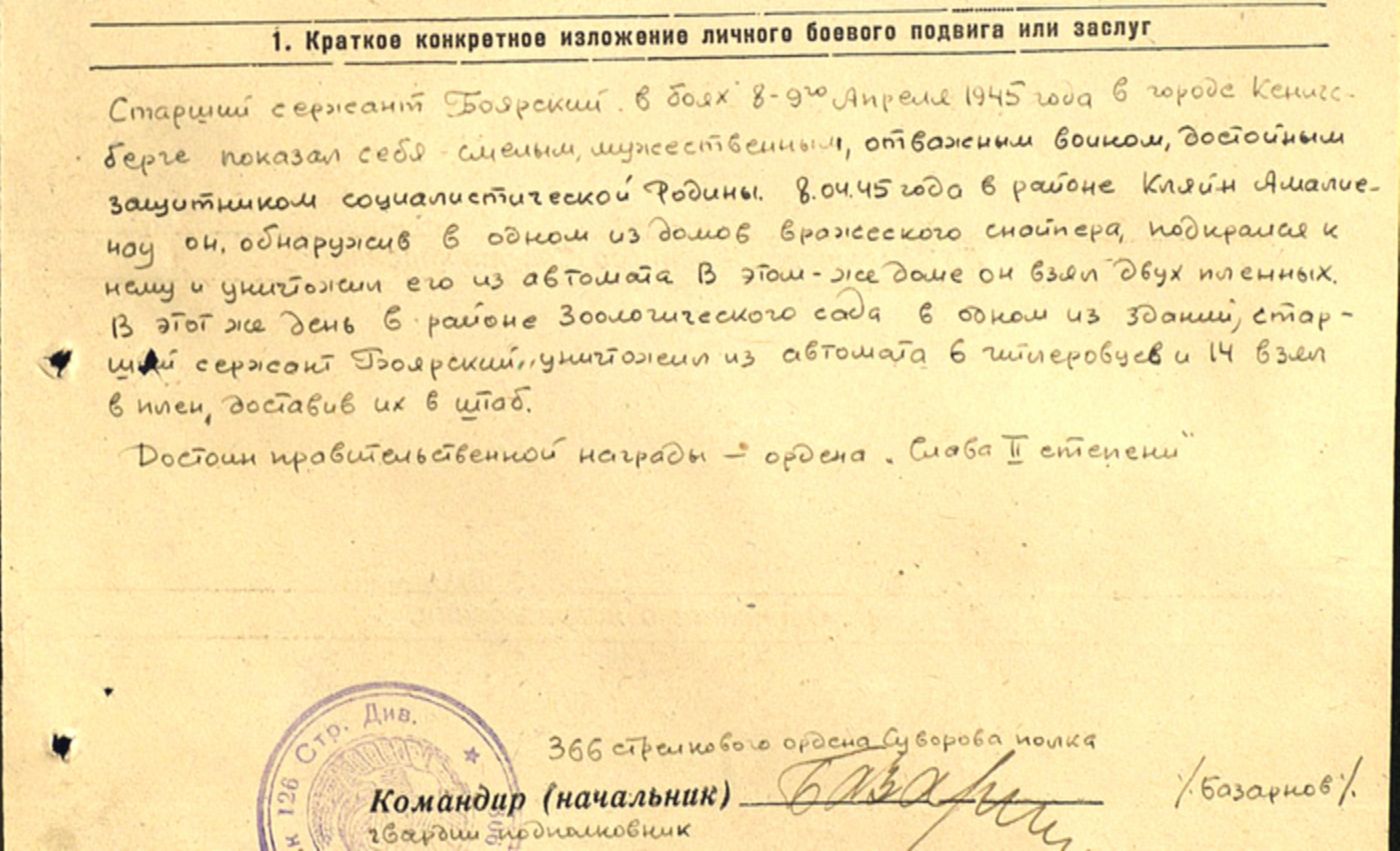 1. Краткое конкретное изложение личного боевого подвига или заслуг
Старший сержант Боярский в боях 8-9го Апреля 1945 года в городе Кенигс-
берге показал себя смелым, мужественным, отважным воином, достойным
защитником социалистической Родины. 8.04.45 года в районе Кляйн Амалие-
нау он, обнаружив в одном из домов вражеского снайпера, подкрался к
нему и уничтожил его из автомата В этом-же доме он взял двух пленных.
В этот же день в районе Зоологического сада в одном из зданий, стар-
ший сержант Боярский, уничтожил из автомата 6 гитлеровцев и 14 взял
в плен, доставив их в штаб.
Достоин правительственной награды – ордена „Слава II степени"
126 Стр. Див.
366 стрелкового ордена Суворова полка
Командир (начальник) Базарн
/Базарнов/.
гвардии подполковник